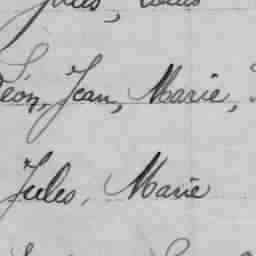 Jules, Louis
Léon, Jean, Marie,
Jules, Marie